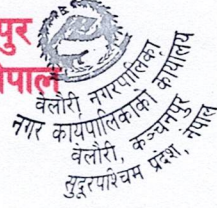 पुर
नेपाल
वेलौरी नगरपालिका
नगर कार्यपालिकाको कार्यालय
वेलौरी, कञ्चनपुर
सुदूरपश्चिम प्रदेश, नेपाल